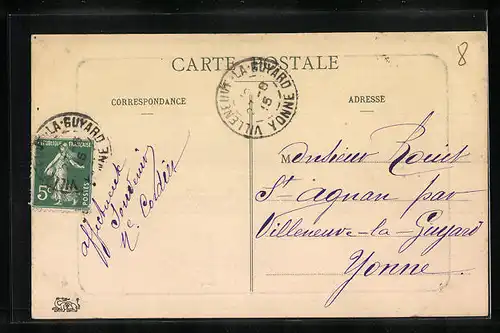 8
CARTE POSTALE
CORRESPONDANCE
ADRESSE
VILLENEUVE-LA-GUYARD
YONNE
LA-GUYARD
REPUBLIQUE FRANÇAISE
5c
POSTES
affectueux
Souvenir
Monsieur
St Agnan par
Villeneuve-la-Guyard
Yonne.